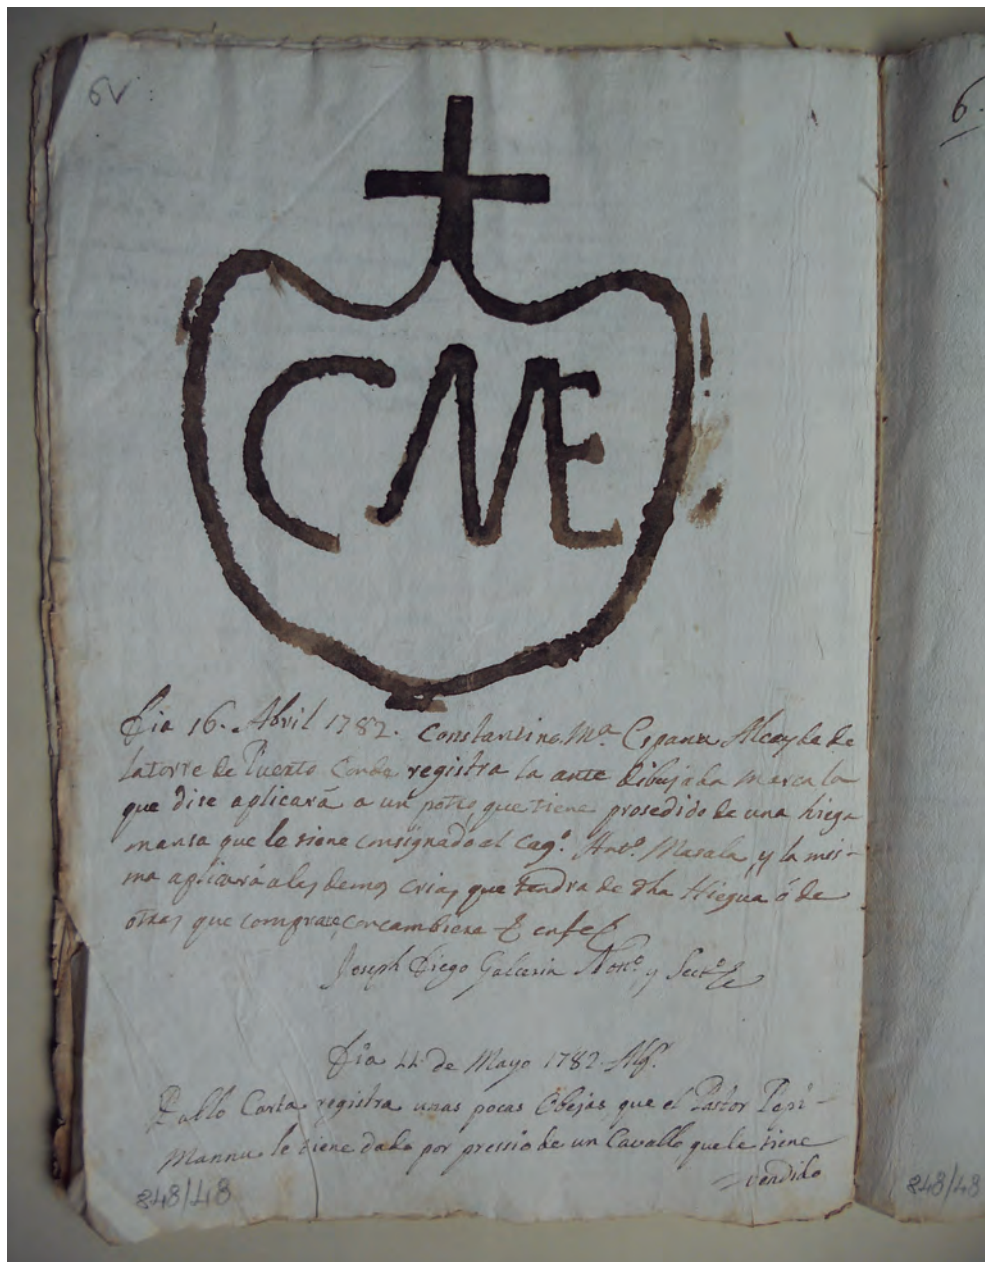 6v
6.
CME
Dia 16. Abril 1782. Constantino Mª. Cipana Alcayde de
la torre de Puerto Conde registra la ante dibujada marca la
que dise aplicará a un potro, que tiene prosedido de una hiegua
mansa que le tiene consignado el Cagº. Antº. Masala, y la mis-
ma aplicará a las demas crias, que tendra de dha Hiegua ó de
otras que comprare, concambiera
Joseph Diego Galcerin Notº. y Secrº.
Dia 11 de Mayo 1782. Algr.
Pablo Carta registra unas pocas Obejas que el Pastor Pepi
Mannu le tiene dado por pressio de un Cavallo que le tiene
vendido
848/48
848/48